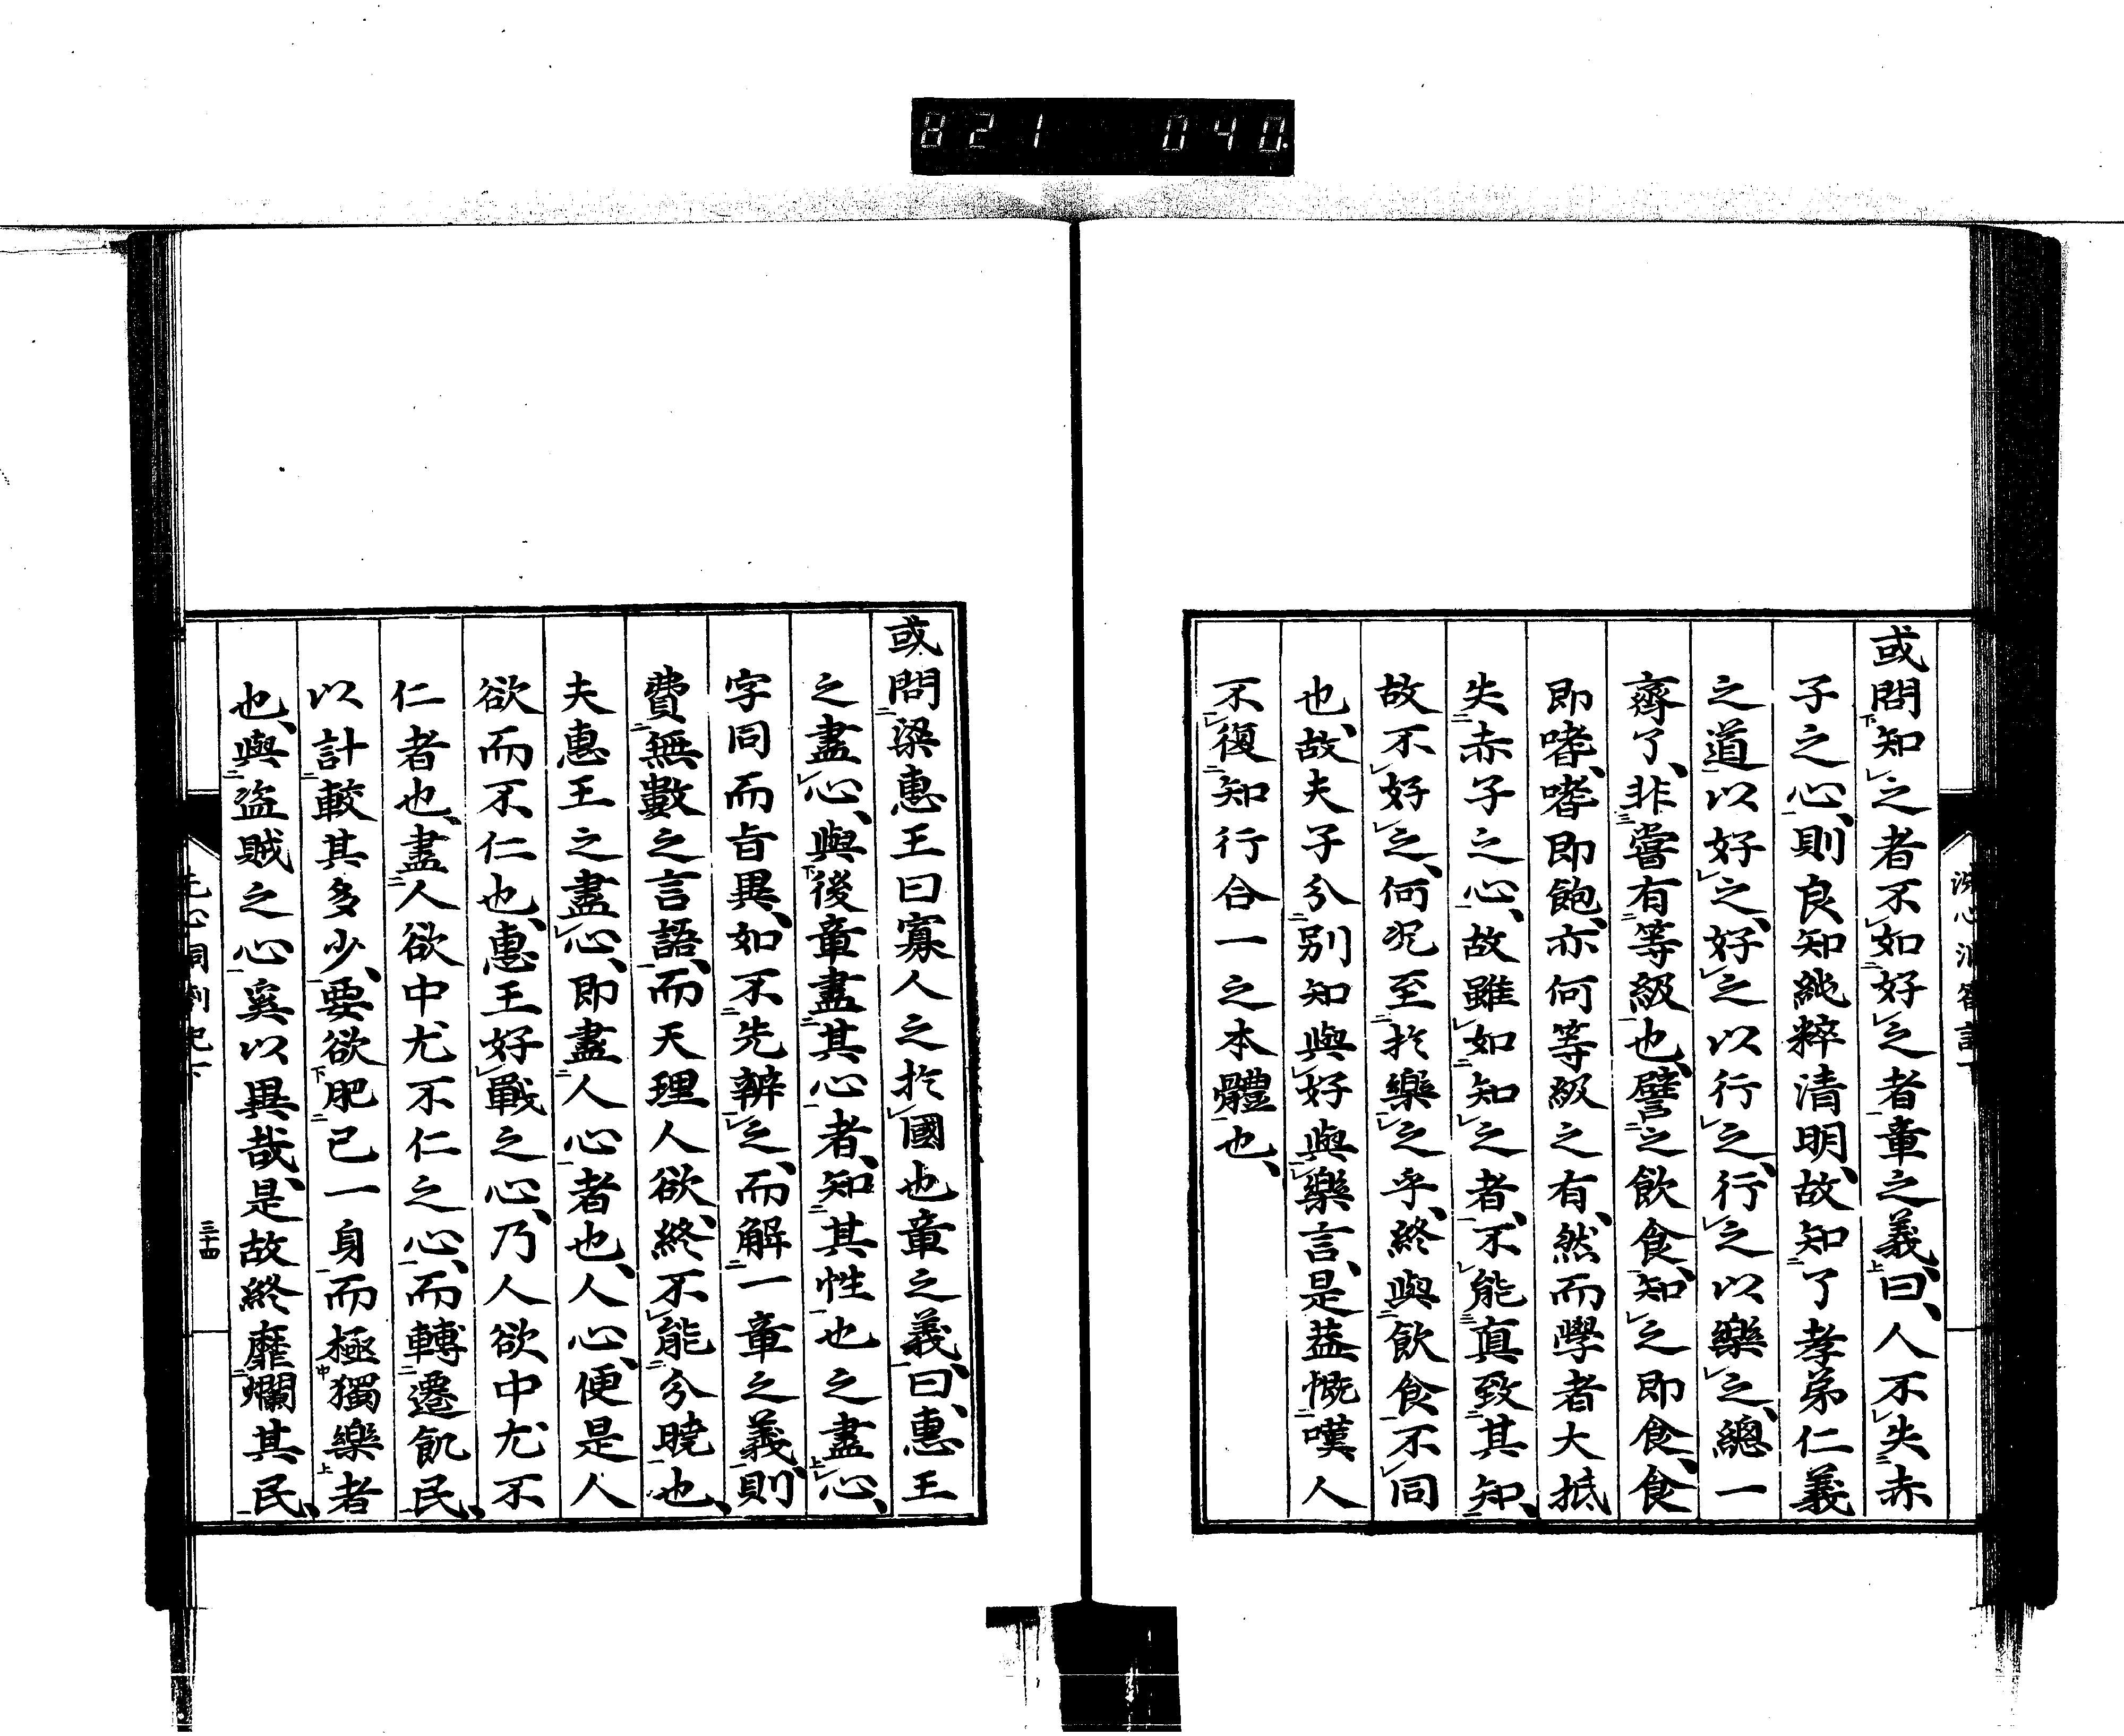 821 040
或問知之者不如好之者章之義曰、人不失赤
子之心、則良知純粹淸明、故知了孝弟仁義
之道以好之、好之以行之、行之以樂之、總一
齊了、非嘗有等級也、譬之飮食、知之即食、食
即嗜、嗜即飽、亦何等級之有、然而學者大抵
失赤子之心、故雖如知之者、不能真致其知、
故不好之、何况至於樂之乎、終與飮食不同
也、故夫子分別知與好與樂言、是蓋慨嘆人
不復知行合一之本體也、
或問梁惠王曰寡人之於國也章之義、曰、惠王
之盡心、與後章盡其心者、知其性也之盡心、
字同而旨異、如不先辨之、而解一章之義、則
費無數之言語、而天理人欲、終不能分曉也、
夫惠王之盡心、即盡人心者也、人心便是人
欲而不仁也、惠王好戰之心、乃人欲中尤不
仁者也、盡人欲中尤不仁之心、而轉遷飢民、
以計較其多少、要欲肥己一身而極獨樂者
也、與盜賊之心奚以異哉、是故終靡爛其民、
三十四